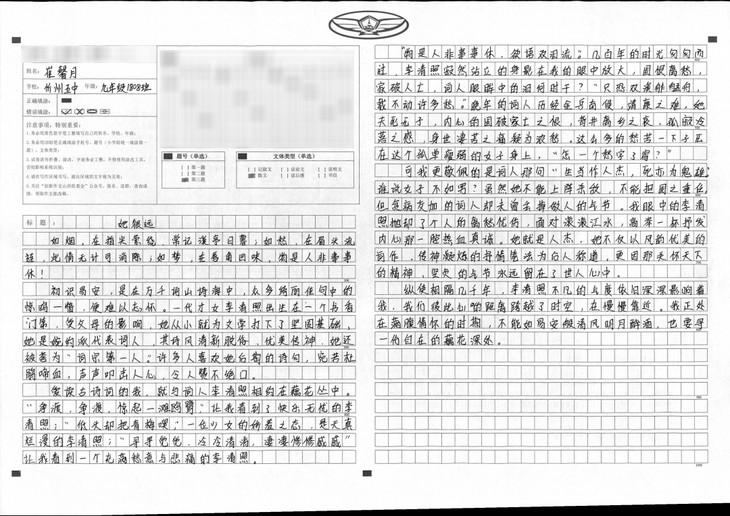 姓名：崔馨月
学校：忻州五中 年级：九年级1808班
正确填涂：
错误填涂：
注意事项，特别重要：
题号（单选）
文体类型（单选）
第一题
第二题
第三题
记叙文 议论文 说明文
散文 读后感 书信
标题：她很远
如烟，在指尖萦绕，常记溪亭日暮；如愁，在眉头流
转，此情无计可消除；如梦，在唇角回味，物是人非事事
休！
初识易安，是在万千词山诗海中，众多绮丽佳句中的
惊鸿一瞥，便难以忘怀。一代才女李清照出生在一个书香
门第，受父母的影响，她从小就为文学打下了坚固基础，
她是婉约派代表词人，其诗风清新脱俗，优美传神，她还
被誉为“词宗第一人”；许多人喜欢她白菊的诗句，宛若杜
鹃啼血，声声叩出人心，令人赞不绝口。
爱读古诗词的我，就与词人李清照相约在藕花丛中。
“争渡，争渡，惊起一滩鸥鹭”让我看到了快乐无忧的李
清照；“依头却把青梅嗅”一位少女的娇羞之态，是天真
烂漫的李清照；“寻寻觅觅，冷冷清清，凄凄惨惨戚戚”
让我看到一个充满愁意与悲痛的李清照。
“物是人非事事休，欲语泪双流”几百年的时光匆匆而
过，李清照寂然站立的身影在我的眼中放大，国恨离愁，
家破人亡，词人眼眸中的泪何时干？“只恐双溪舴艋舟，
载不动许多愁。”晚年的词人历经金兵南侵，靖康之难，她
无儿无子，内心的国破家亡之恨，背井离乡之哀，孤寂冷
落之感，身世凄苦之痛凝为浓愁，这么多的愁苦一下子压
在这个孤单瘦弱的女子身上，“怎一个愁字了得？”
可我更敬佩的是词人那句“生当作人杰，死亦为鬼雄”
谁说女子不如男？虽然她不能上阵杀敌，不能担国之重任
但气病发的词人却未曾丢掉做人的气节。我眼中的李清
照抛却了个人的离愁忧伤，面对滚滚江水，高举一杯抒发
内心那一腔热血真语。她就是人杰，她不仅以风韵优美的
词作，传神凝炼的抒情笔法为后人称道，更因那夫怀天下
的精神，坚贞的气节永远留在了世人心中。
纵使相隔几千年，李清照不凡的气度依旧深深影响着
我，我们彼此心的距离跨越了时空，在慢慢靠近。我正处
在满腹情怀的时期，不能如易安般清风明月醉酒，也要寻
一份自在的藕花深处。